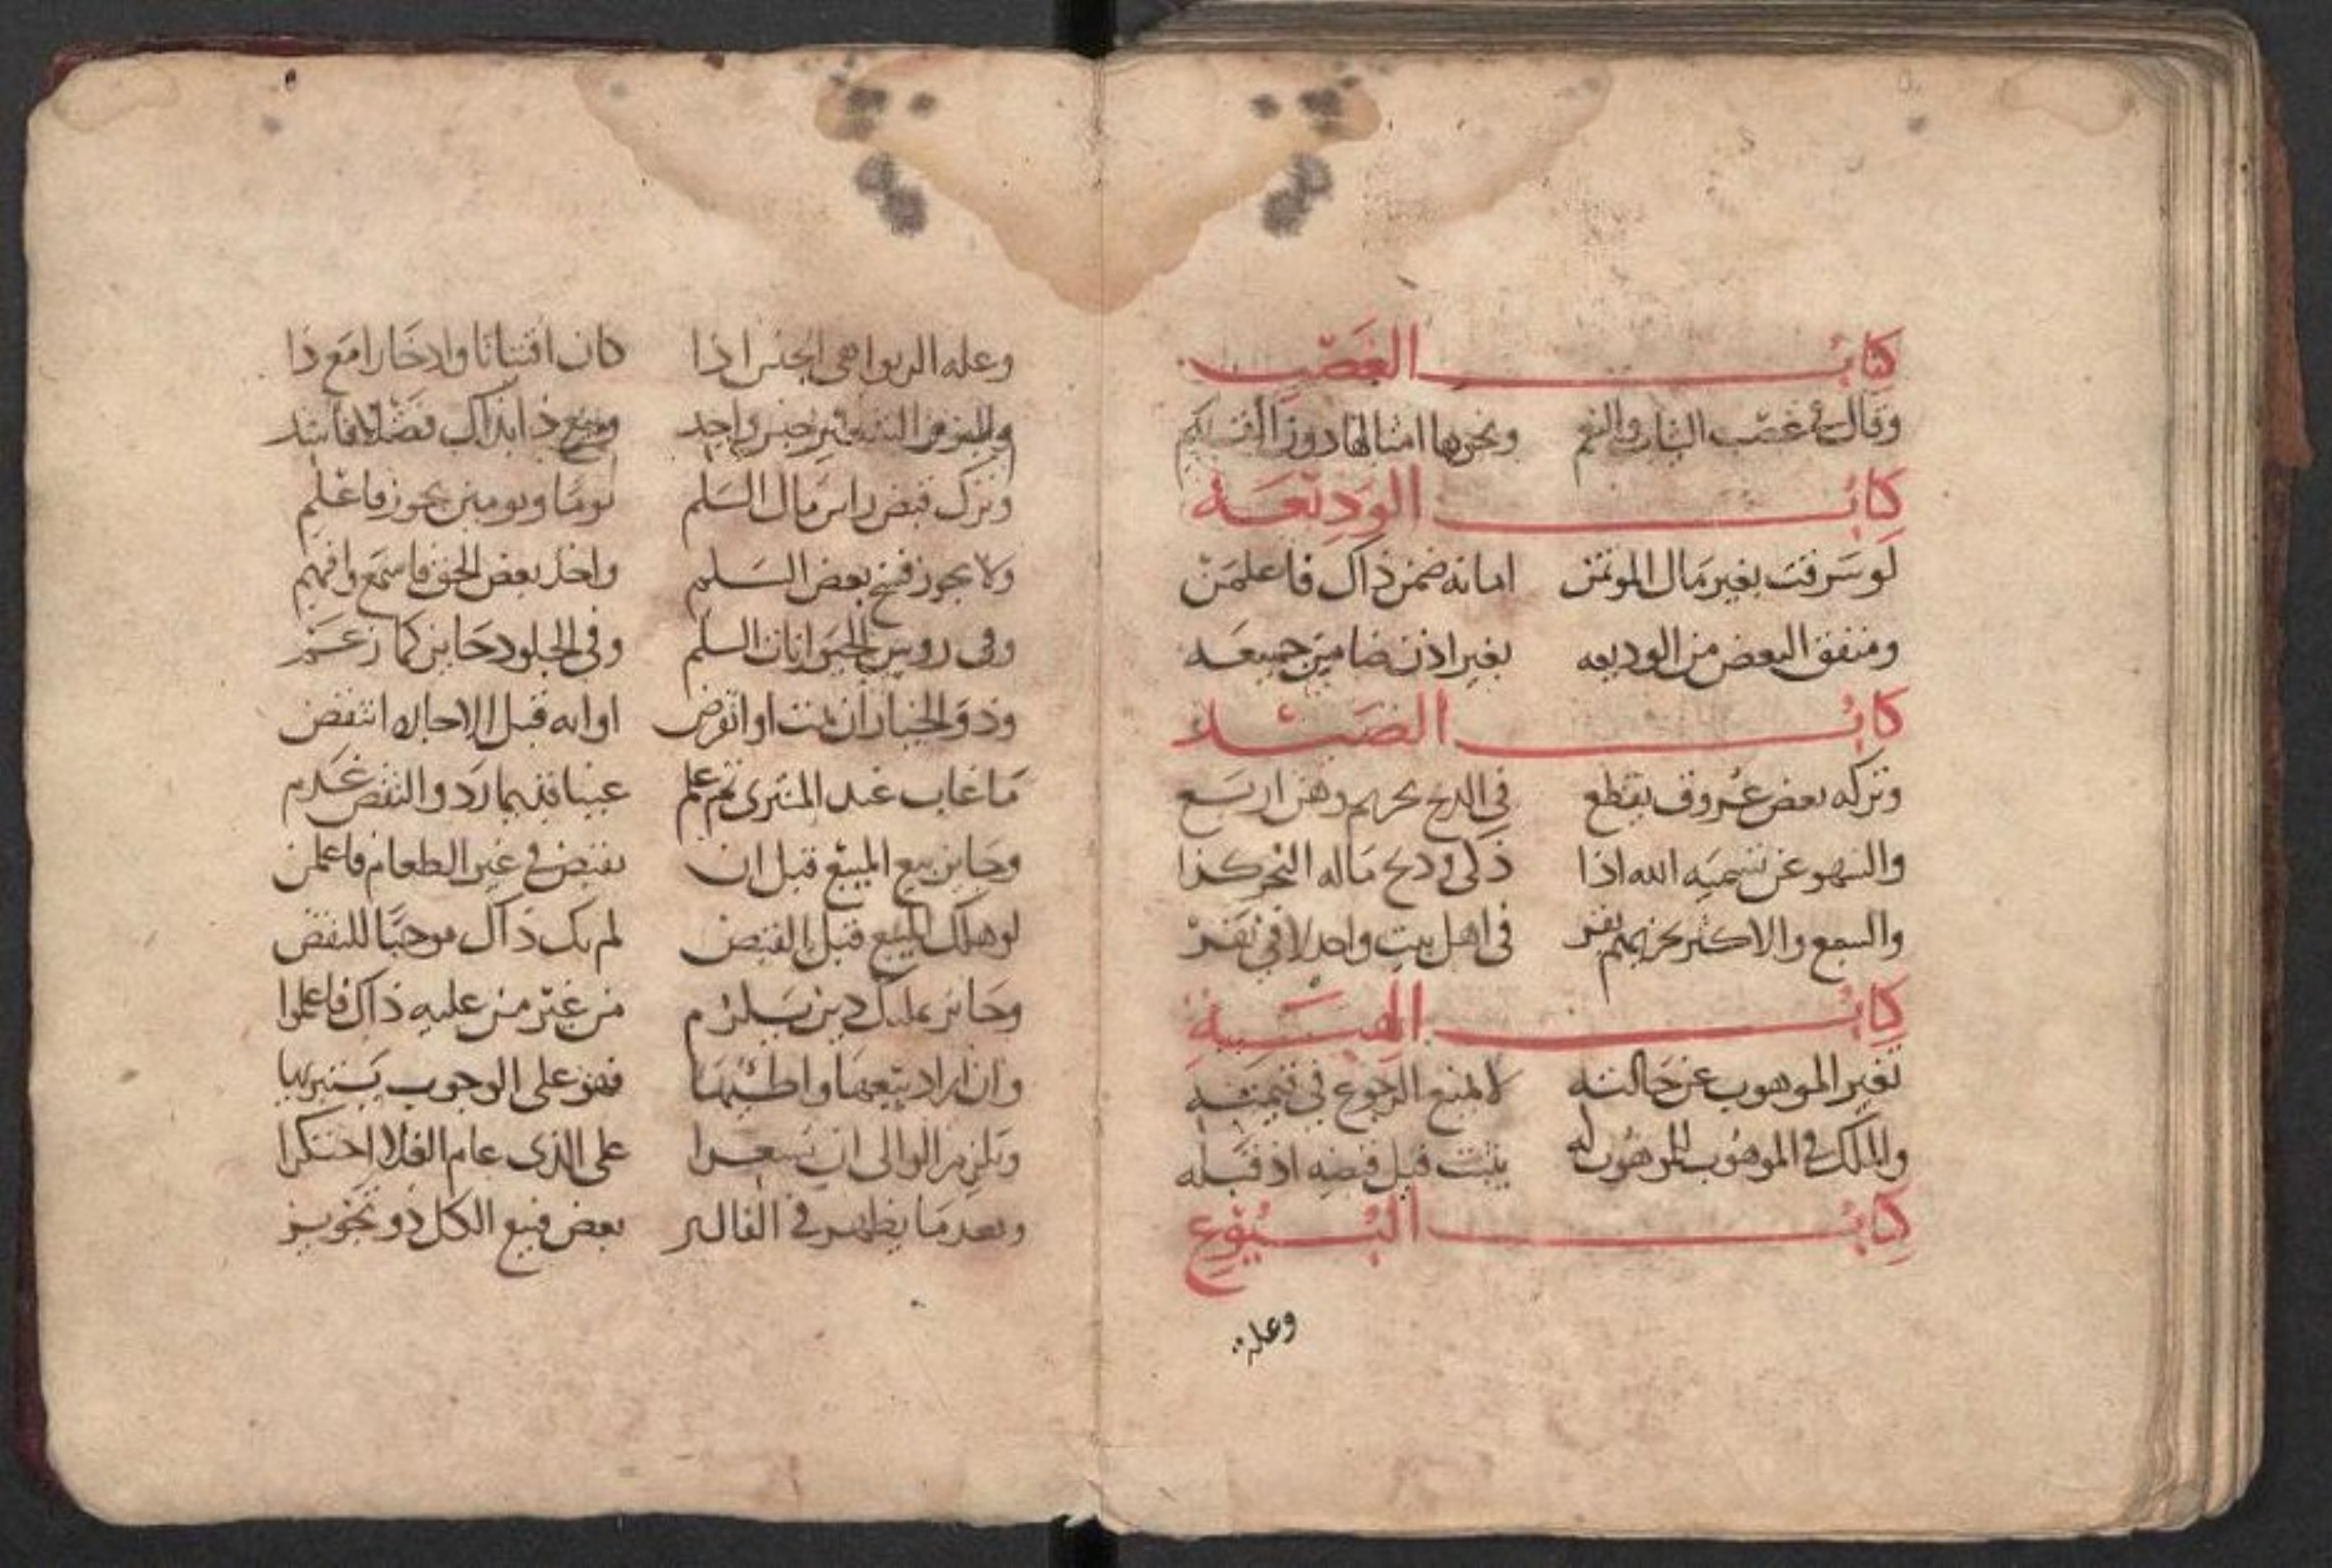 كتاب الغصب
وقال في غصب الثياب والنعم ونحوها امثالها دون القيم
كتاب الوديعة
لو سرقت بغير مال الموتمن امانه ضمن ذاك فاعلمن
ومنفق البعض من الوديعه بغير اذن ضامن جميعه
كتاب الصيد
وتركه بعض عروق يقطع في الذبح تحريم وهن اربع
والسهو عن تسميه الله اذا ذكى وذبح ماله النحر كذا
والسبع والاكثر تجزيهم بقر في اهل بيت واحد لا في نفر
كتاب الهبة
تغير الموهوب عن حالته لا منع الرجوع في قيمته
والملك في الموهوب للموهوب له يثبت قبل قبضه اذ قبله
كتاب البيوع
وعلة
وعله الربوا هي الجنس اذا كان اقتياتا وادخارا مع ذا
واللبن من جنس واحد وبيع ذا بذاك فضلا فاسد
وترك قبض راس مال السلم يوما ويومين يجوز فاعلم
ولا يجوز فسخ بعض السلم واخذ بعض الحق فاسمع وافهم
وفي روس الحيوانات السلم وفي الجلود جايز كما زعم
وذو الخيار ان يمت او انقرض او انه قبل الاجازه انتقض
ما غاب عند المشترى ثم علم عيبا قديما رد والنقص غرم
وجايز بيع المبيع قبل ان يقبض في غير الطعام فاعلمن
لو هلك المبيع قبل القبض لم يك ذاك موجبا للنقض
وجايز تمليك دين يلزم من غير من عليه ذاك فاعلموا
وان اراد بيعها واطئها فهو على الوجوب يستبريها
ويلزم الوالى ان يسعرا على الذى عام الغلا احتكرا
وبعد ما يظهر في بعض فبيع الكل ذو تجويز